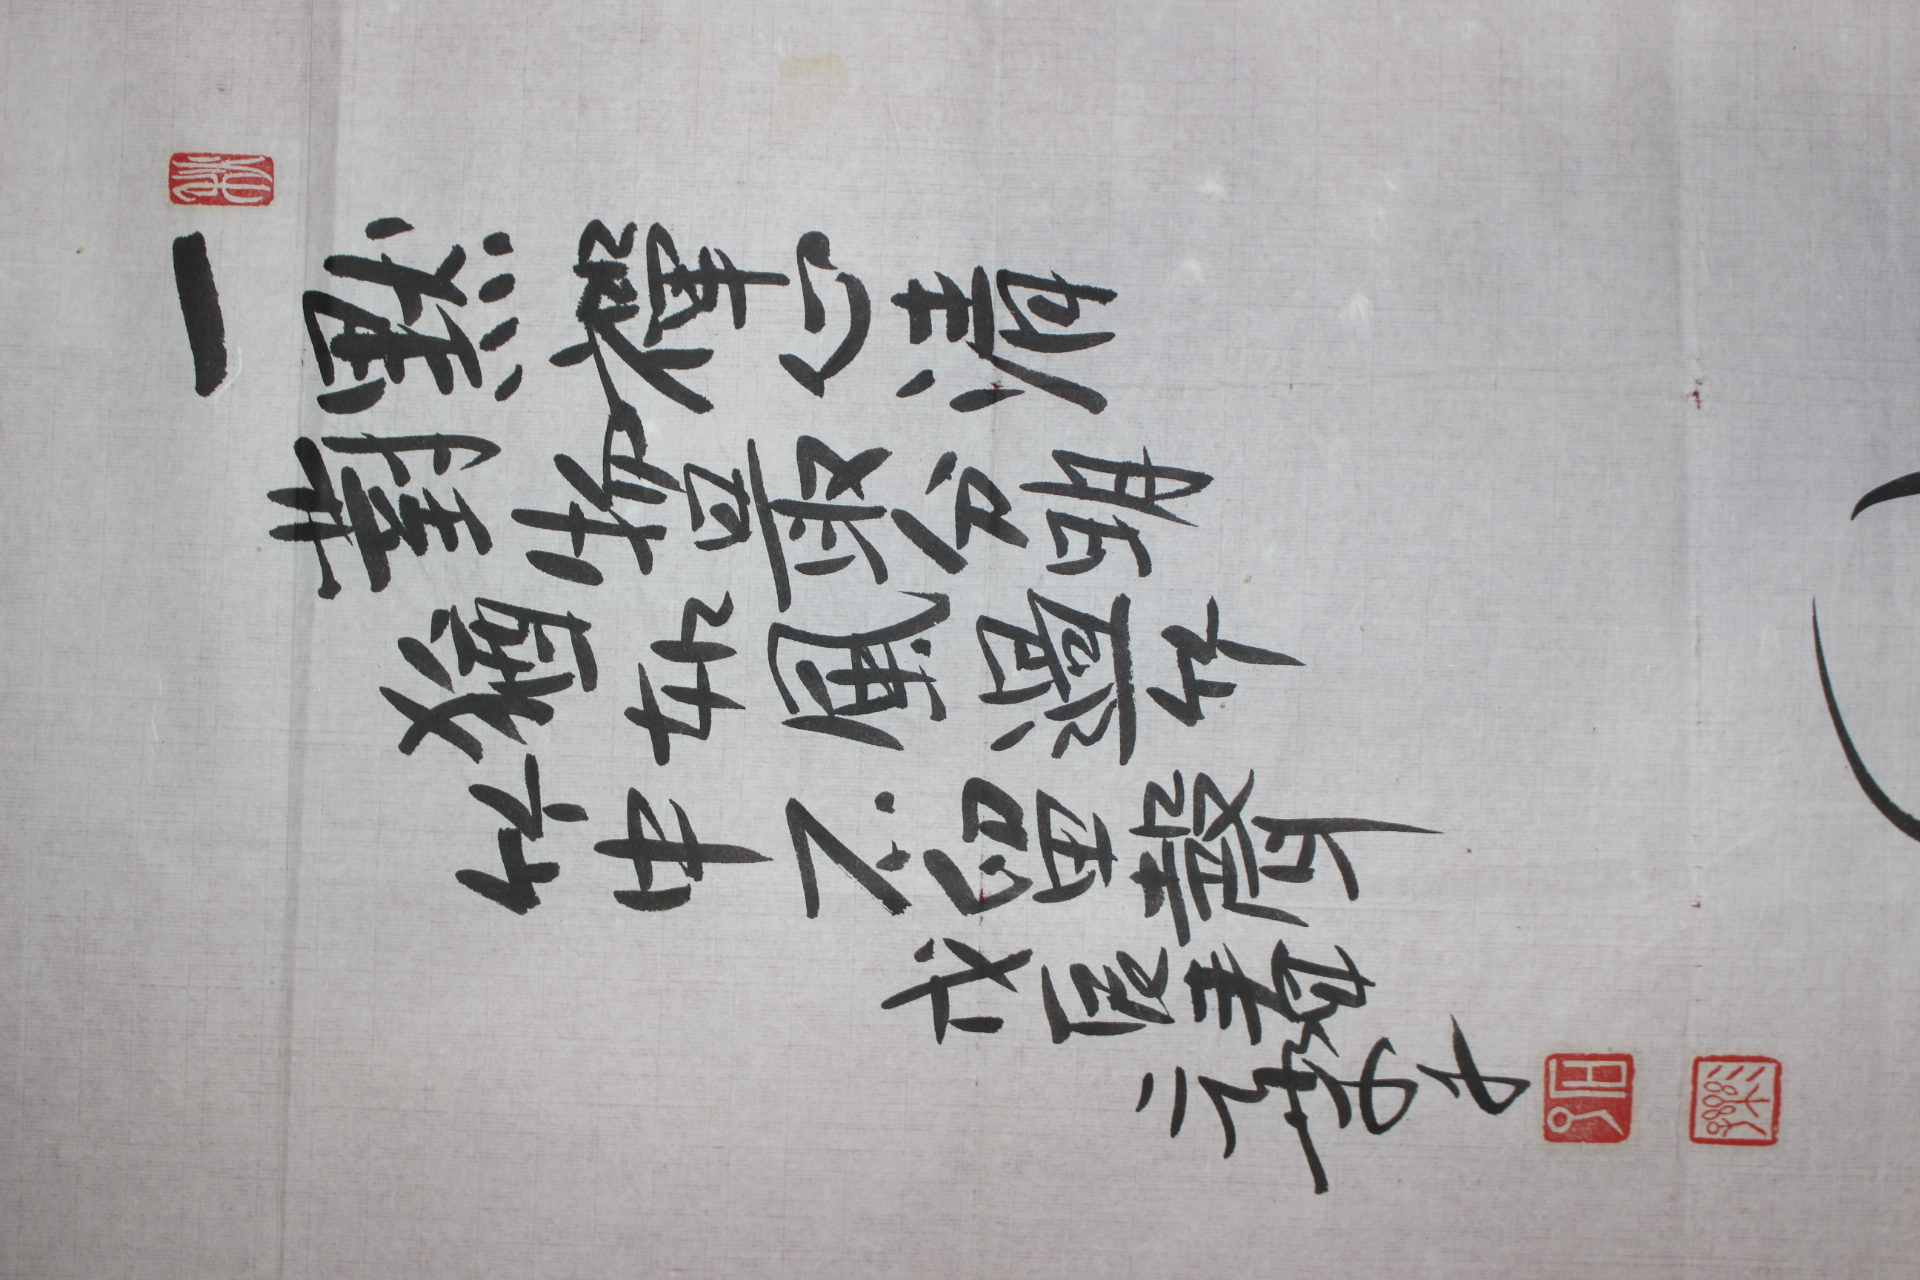 一默禪心清
對物最分明
猶如風過竹
竹中不留聲
戊辰
子